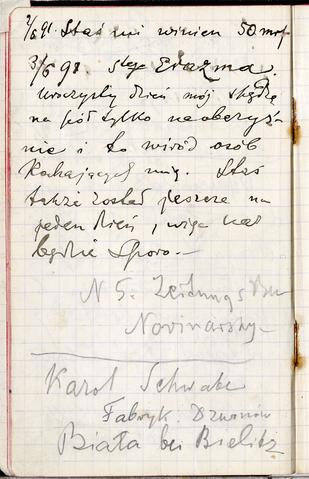 2/6 91. Staś mi winien 50 mrf
3/6 91. Sgo Erazma.
Uroczysty dzień mój spędzę
na pół tylko na obczyź-
nie i to wśród osób
Kochających mię. Staś
także został jeszcze na
jeden dzień, więc nas
będzie sporo.—
N 5. Zeitungs
Novinarsky
Karol Schwabe
Fabryk. Dzwonów
Biała bei Bielitz